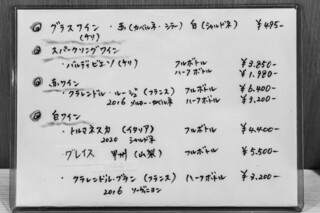 グラスワイン ・赤(カベルネ・シラー) 白(シャルドネ) ¥495-
(チリ)
スパークリングワイン
・バルディビエソ(チリ) フルボトル ¥3.850-
ハーフボトル ¥1.980-
赤ワイン
・クラレンドル・ルージュ(フランス) フルボトル ¥6.400-
2016 メルロー・カベルネ ハーフボトル ¥3.200-
白ワイン
・トルマネスカ(イタリア) フルボトル ¥4.400-
2020 シャルドネ
グレイス 甲州(山梨) フルボトル ¥5.500-
・クラレンドル・ブラン(フランス) ハーフボトル ¥3.200-
2016 ソーヴィニヨン